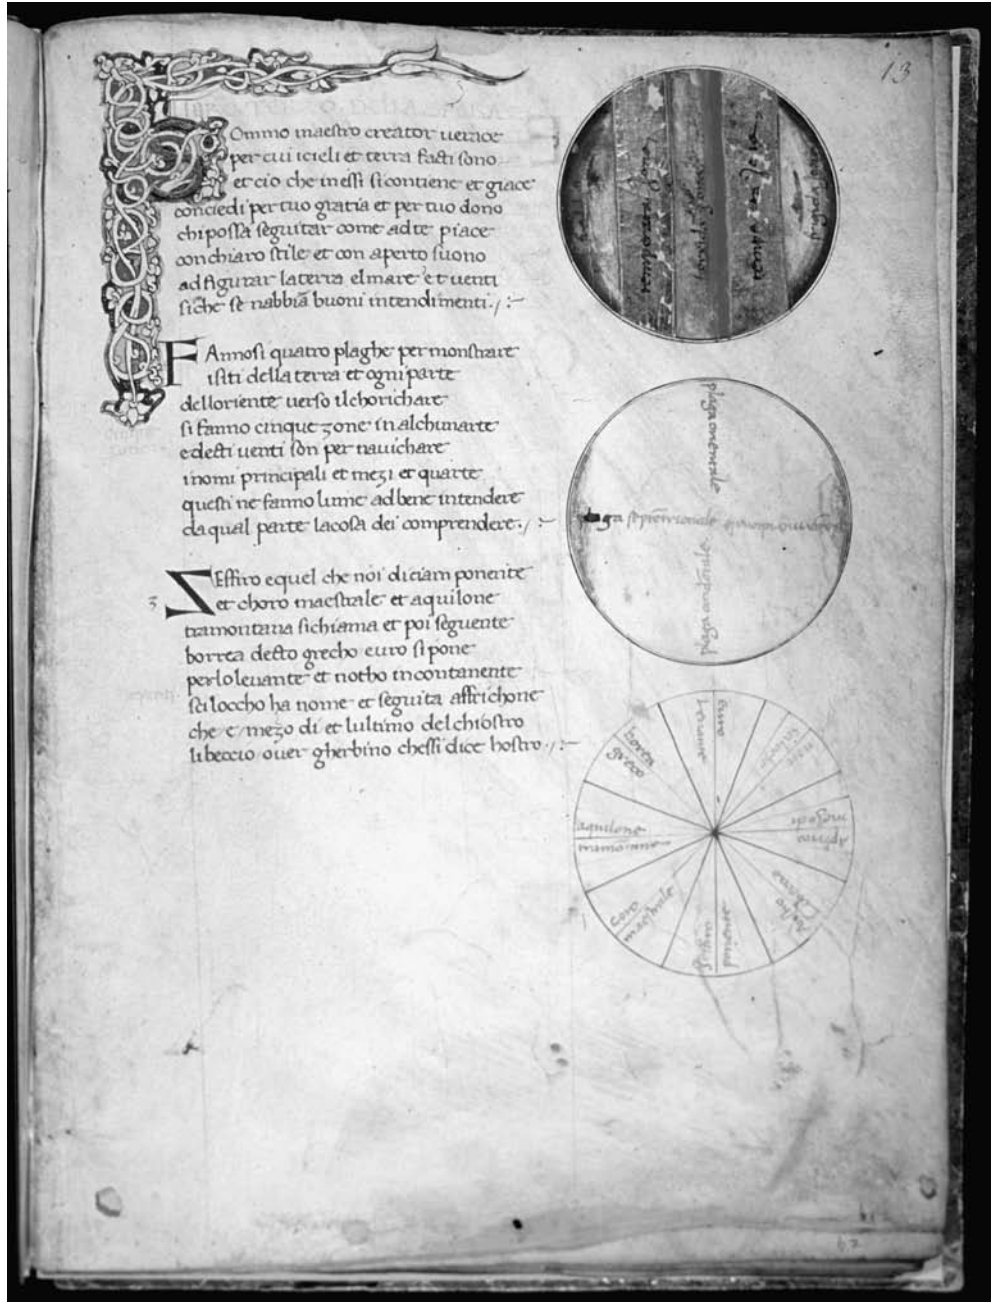 13
Ommo maestro creator uerace
per cui icieli et terra facti sono
et cio che inessi si contiene et giace
conciedi per tuo gratia et per tuo dono
chi possa seguitar come adte piace
con chiaro stile et con aperto suono
ad figurar la terra elmare et uenti
siche se nabbiā buoni intendimenti
FAnnosi quatro plaghe per monstrare
isiti della terra et ogni parte
delloriente uerso ilchorichare
si fanno cinque zone in alchunarte
edecti uenti son per nauichare
inomi principali et mezi et quarte
questi ne fanno lume ad bene intendere
da qual parte lacosa dei comprendere
3
ZEffiro equel che noi diciam ponente
et choro maestrale et aquilone
tramontana sichiama et poi seguente
borrea decto grecho euro si pone
perloleuante et notho incontanente
sciloccho ha nome et seguita affrichone
che e mezo di et lultimo del chiostro
libeccio ouer gherbino chessi dice hostro
temporata zona
torrida zona
tempata zona
frigida
plaga orientale
plaga septētrionale
plaga
euro
leuante
borea
greco
aquilone
coro
maestrale
zephiro
ponente
mezodi
africo
b2